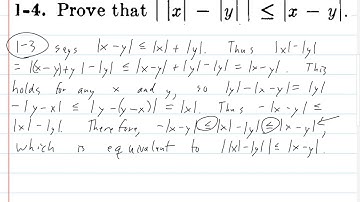 1-4. Prove that | |x| − |y| | ≤ |x − y|.
1-3 says |x-y| ≤ |x| + |y|. Thus |x|-|y|
= |(x-y)+y| - |y| ≤ |x-y| + |y| - |y| = |x-y|. This
holds for any x and y, so |y| - |x-y| = |y|
- |y-x| ≤ |y-(y-x)| = |x|. Thus -|x-y| ≤
|x|-|y|. Therefore, -|x-y| ≤ |x|-|y| ≤ |x-y|,
which is equivalent to ||x|-|y|| ≤ |x-y|.